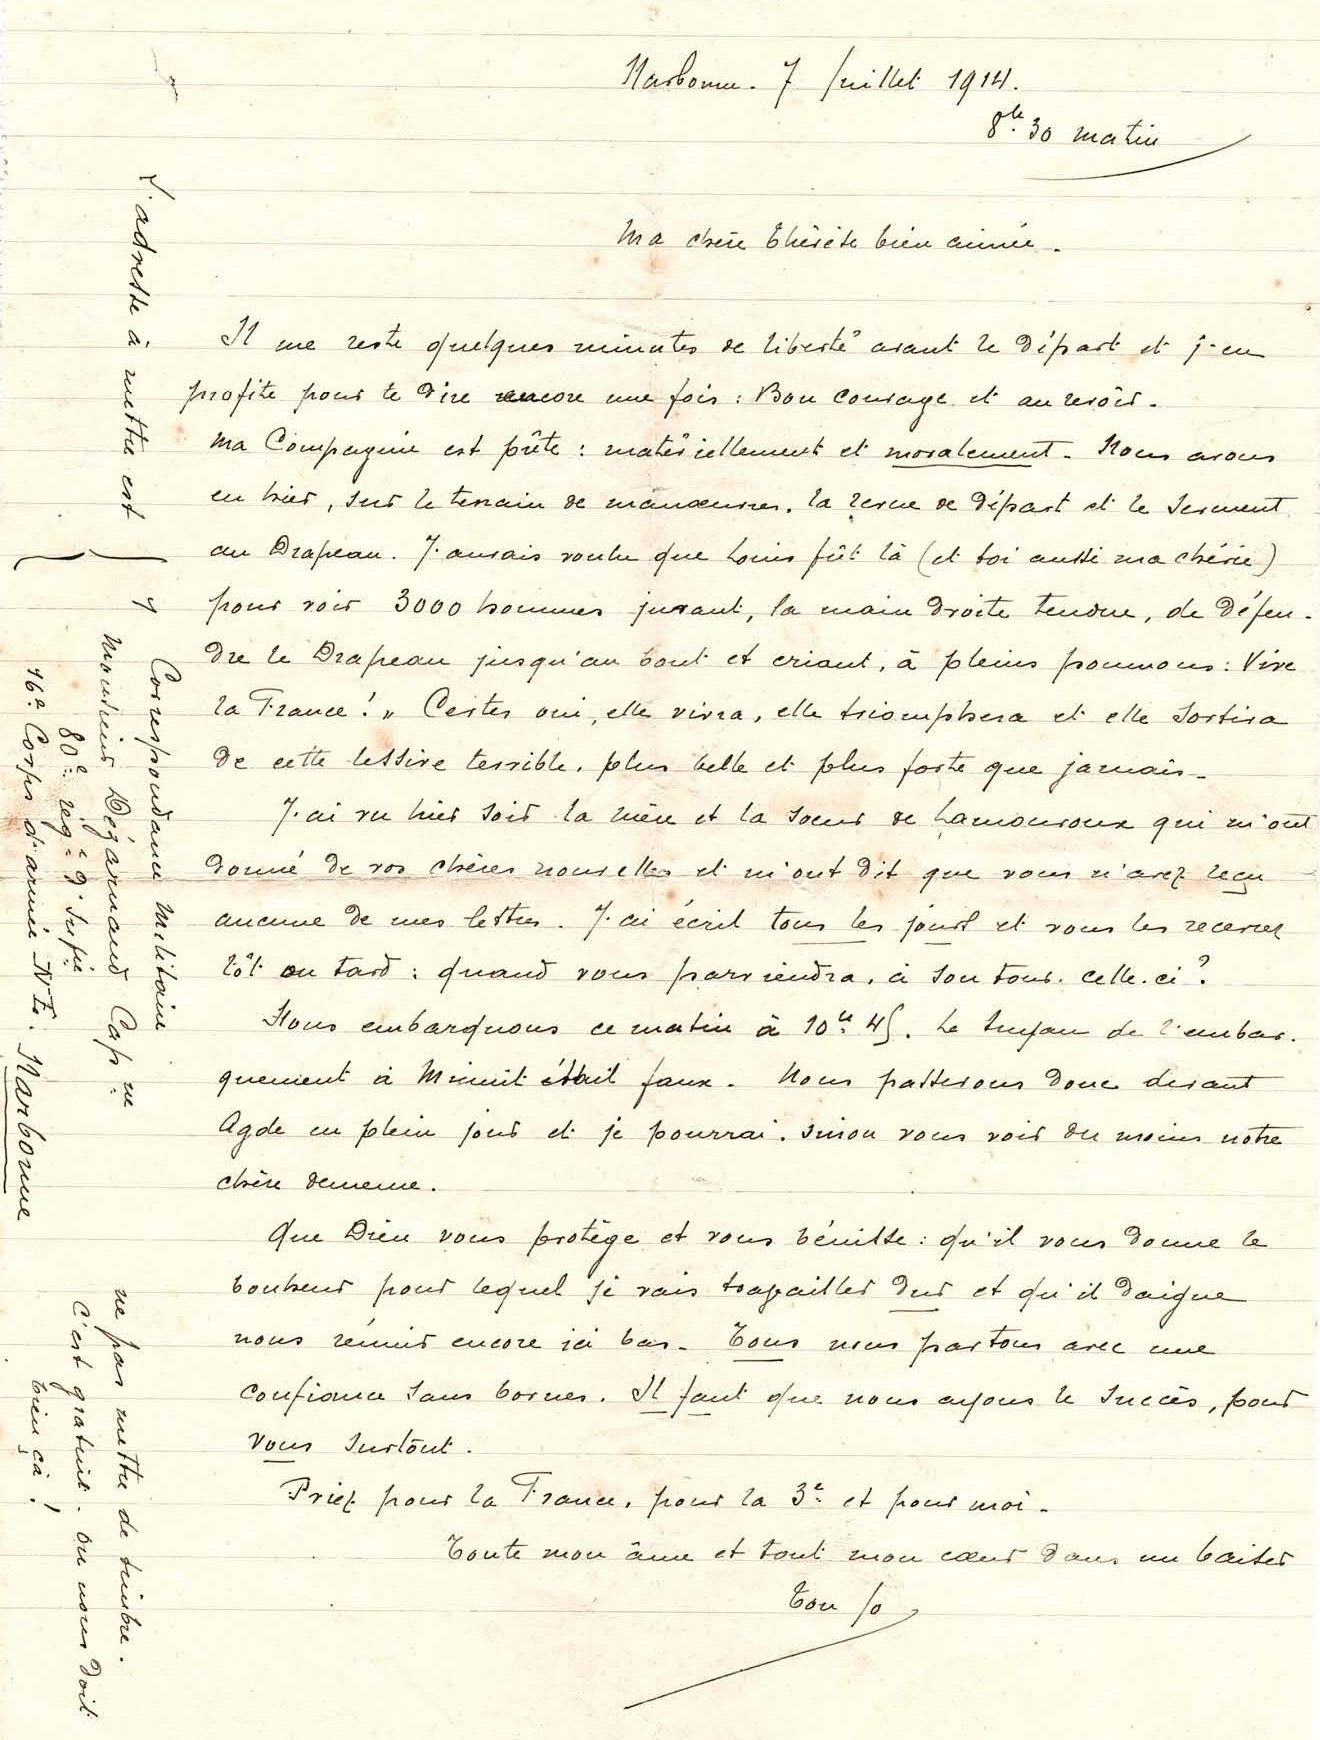 Narbonne. 7 Juillet 1914.
8h. 30 matin
Ma chère Thérèse bien aimée.
Il me reste quelques minutes de liberté avant le départ et j'en
profite pour te dire encore une fois : Bon courage et au revoir.
Ma Compagnie est prête : matériellement et moralement. Nous avons
eu hier, sur le terrain de manœuvres, la revue de départ et le serment
au Drapeau. J'aurais voulu que Louis fût là (et toi aussi ma chérie)
pour voir 3000 hommes jurant, la main droite tendue, de défen-
dre le Drapeau jusqu'au bout et criant, à pleins poumons : Vive
la France ! „ Certes oui, elle vivra, elle triomphera et elle sortira
de cette lessive terrible, plus belle et plus forte que jamais.
J'ai vu hier soir la mère et la sœur de Lamouroux qui m'ont
donné de vos chères nouvelles et m'ont dit que vous n'avez reçu
aucune de mes lettres. J'ai écrit tous les jours et vous les recevrez
tôt ou tard : quand vous parviendra, à son tour, celle-ci ?
Nous embarquons ce matin à 10h. 45. Le tuyau de l'embar-
quement à Minuit était faux. Nous passerons donc devant
Agde en plein jour et je pourrai, sinon vous voir du moins notre
chère demeure.
Que Dieu vous protège et vous bénisse : qu'il vous donne le
bonheur pour lequel je vais travailler dur et qu'il daigne
nous réunir encore ici bas. Tous nous partons avec une
confiance sans bornes. Il faut que nous ayons le succès, pour
vous surtout.
Priez pour la France, pour la 3e. et pour moi.
Toute mon âme et tout mon cœur dans un baiser
Ton Jo
L'adresse à mettre est
Correspondance Militaire
Monsieur Dégarnaud Cap.ne
80e. rég.t d'Infie
16e. Corps d'armée N Ee. Narbonne
ne pas mettre de timbre.
C'est gratuit. on nous doit
bien çà !